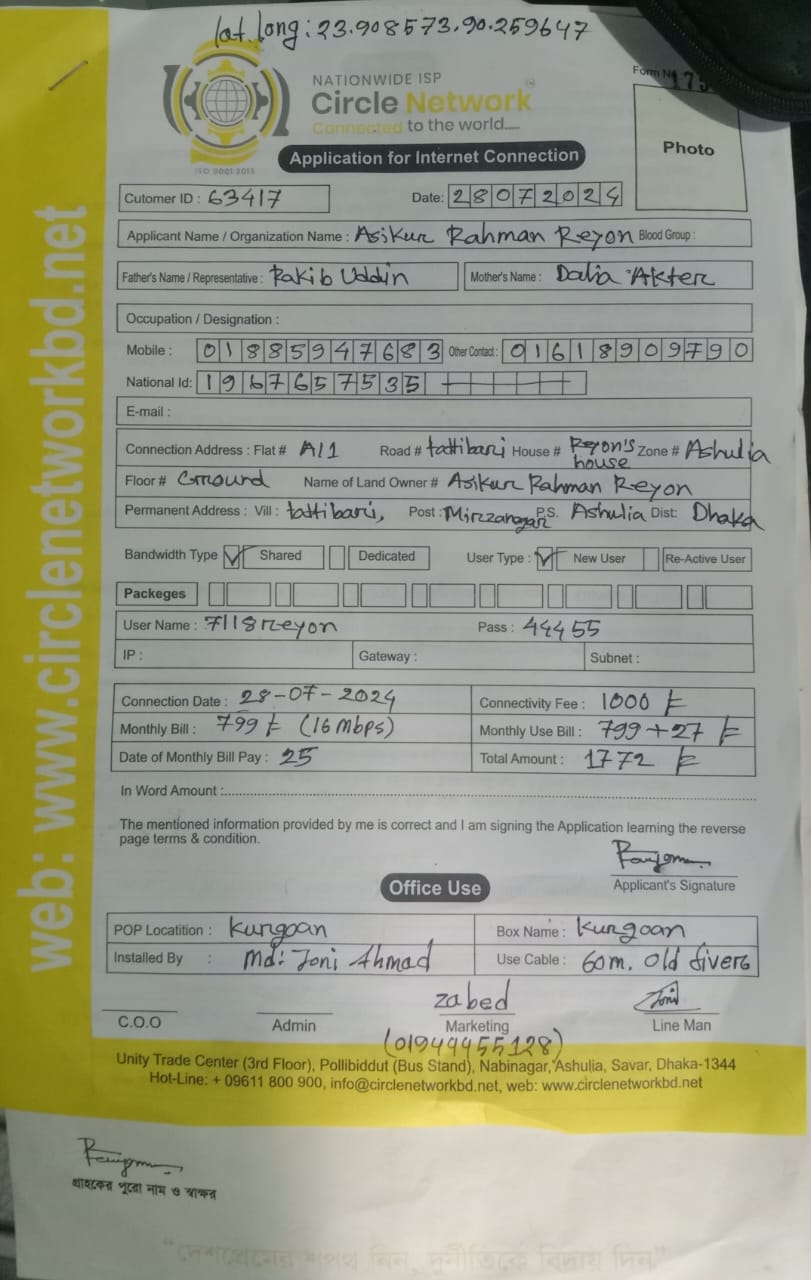 lat.long: 23.908573.90.259647
NATIONWIDE ISP
Circle Network
Connected to the world.....
ISO 9001:2015
Form No 175
Photo
Application for Internet Connection
Cutomer ID : 63417 Date: 28072024
Applicant Name / Organization Name : Asikur Rahman Reyon Blood Group :
Father's Name / Representative : Rakib Uddin Mother's Name : Dalia Akter
Occupation / Designation :
Mobile : 01885947683 Other Contact : 01618909790
National Id: 1967657535
E-mail :
Connection Address : Flat # A/1 Road # tattibari House # Reyon's house Zone # Ashulia
Floor # Ground Name of Land Owner # Asikur Rahman Reyon
Permanent Address : Vill : tattibari, Post : Mirzanagar P.S. Ashulia Dist: Dhaka
Bandwidth Type Shared Dedicated User Type : New User Re-Active User
Packeges
User Name : 7118reyon Pass : 44455
IP : Gateway : Subnet :
Connection Date : 28-07-2024 Connectivity Fee : 1000 ৳
Monthly Bill : 799 ৳ (16 Mbps) Monthly Use Bill : 799+27 ৳
Date of Monthly Bill Pay : 25 Total Amount : 1772 ৳
In Word Amount :
The mentioned information provided by me is correct and I am signing the Application learning the reverse
page terms & condition.
Applicant's Signature
Office Use
POP Locatition : Kurgoan Box Name : Kurgoan
Installed By : Md: Joni Ahmad Use Cable : 60m. Old fiver
zabed Joni
C.O.O Admin Marketing Line Man
(01949455128)
Unity Trade Center (3rd Floor), Pollibiddut (Bus Stand), Nabinagar, Ashulia, Savar, Dhaka-1344
Hot-Line: + 09611 800 900, info@circlenetworkbd.net, web: www.circlenetworkbd.net
web: www.circlenetworkbd.net
গ্রাহকের পুরো নাম ও স্বাক্ষর
"দেশপ্রেমের শপথ নিন, দুর্নীতিকে বিদায় দিন"